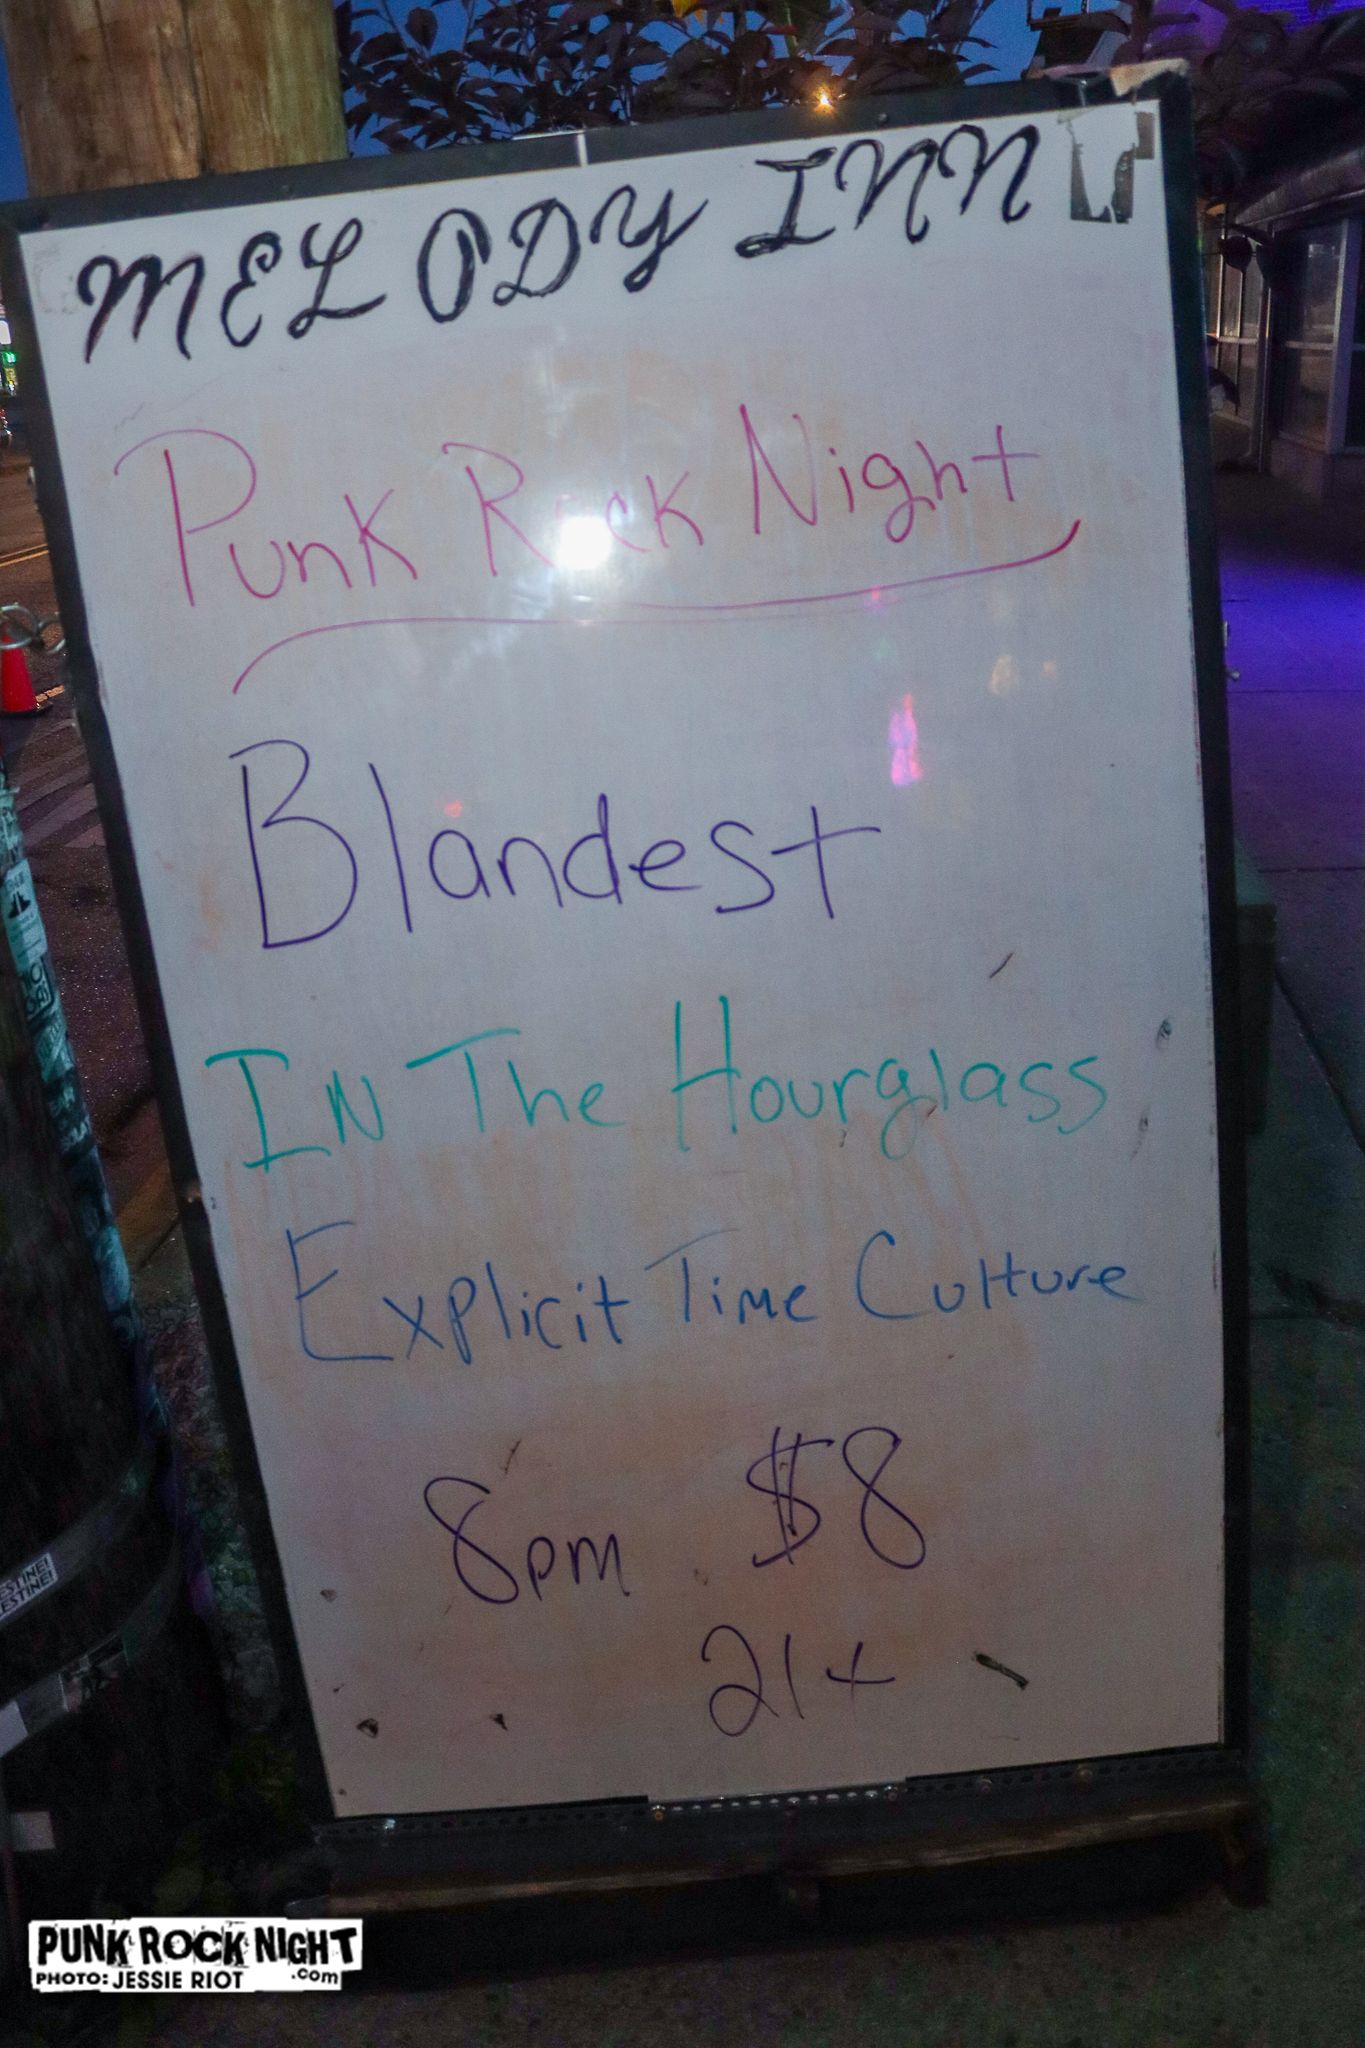 MELODY INN
Punk Rock Night
Blandest
IN The Hourglass
Explicit Time Culture
8pm $8
21+
ESTINE!
ESTINE!
PUNK ROCK NIGHT
.com
PHOTO: JESSIE RIOT